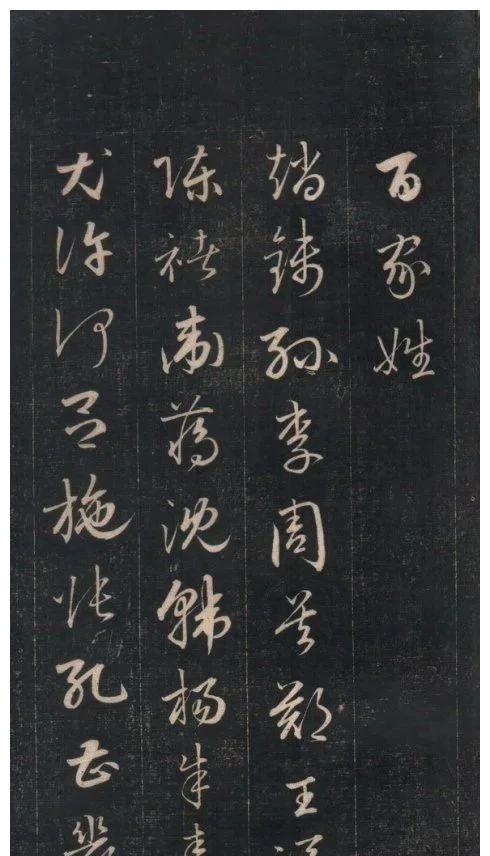 百家姓
趙錢孫李周吳鄭王
陳褚衛蔣沈韓楊朱
尤許何呂施張孔曹嚴